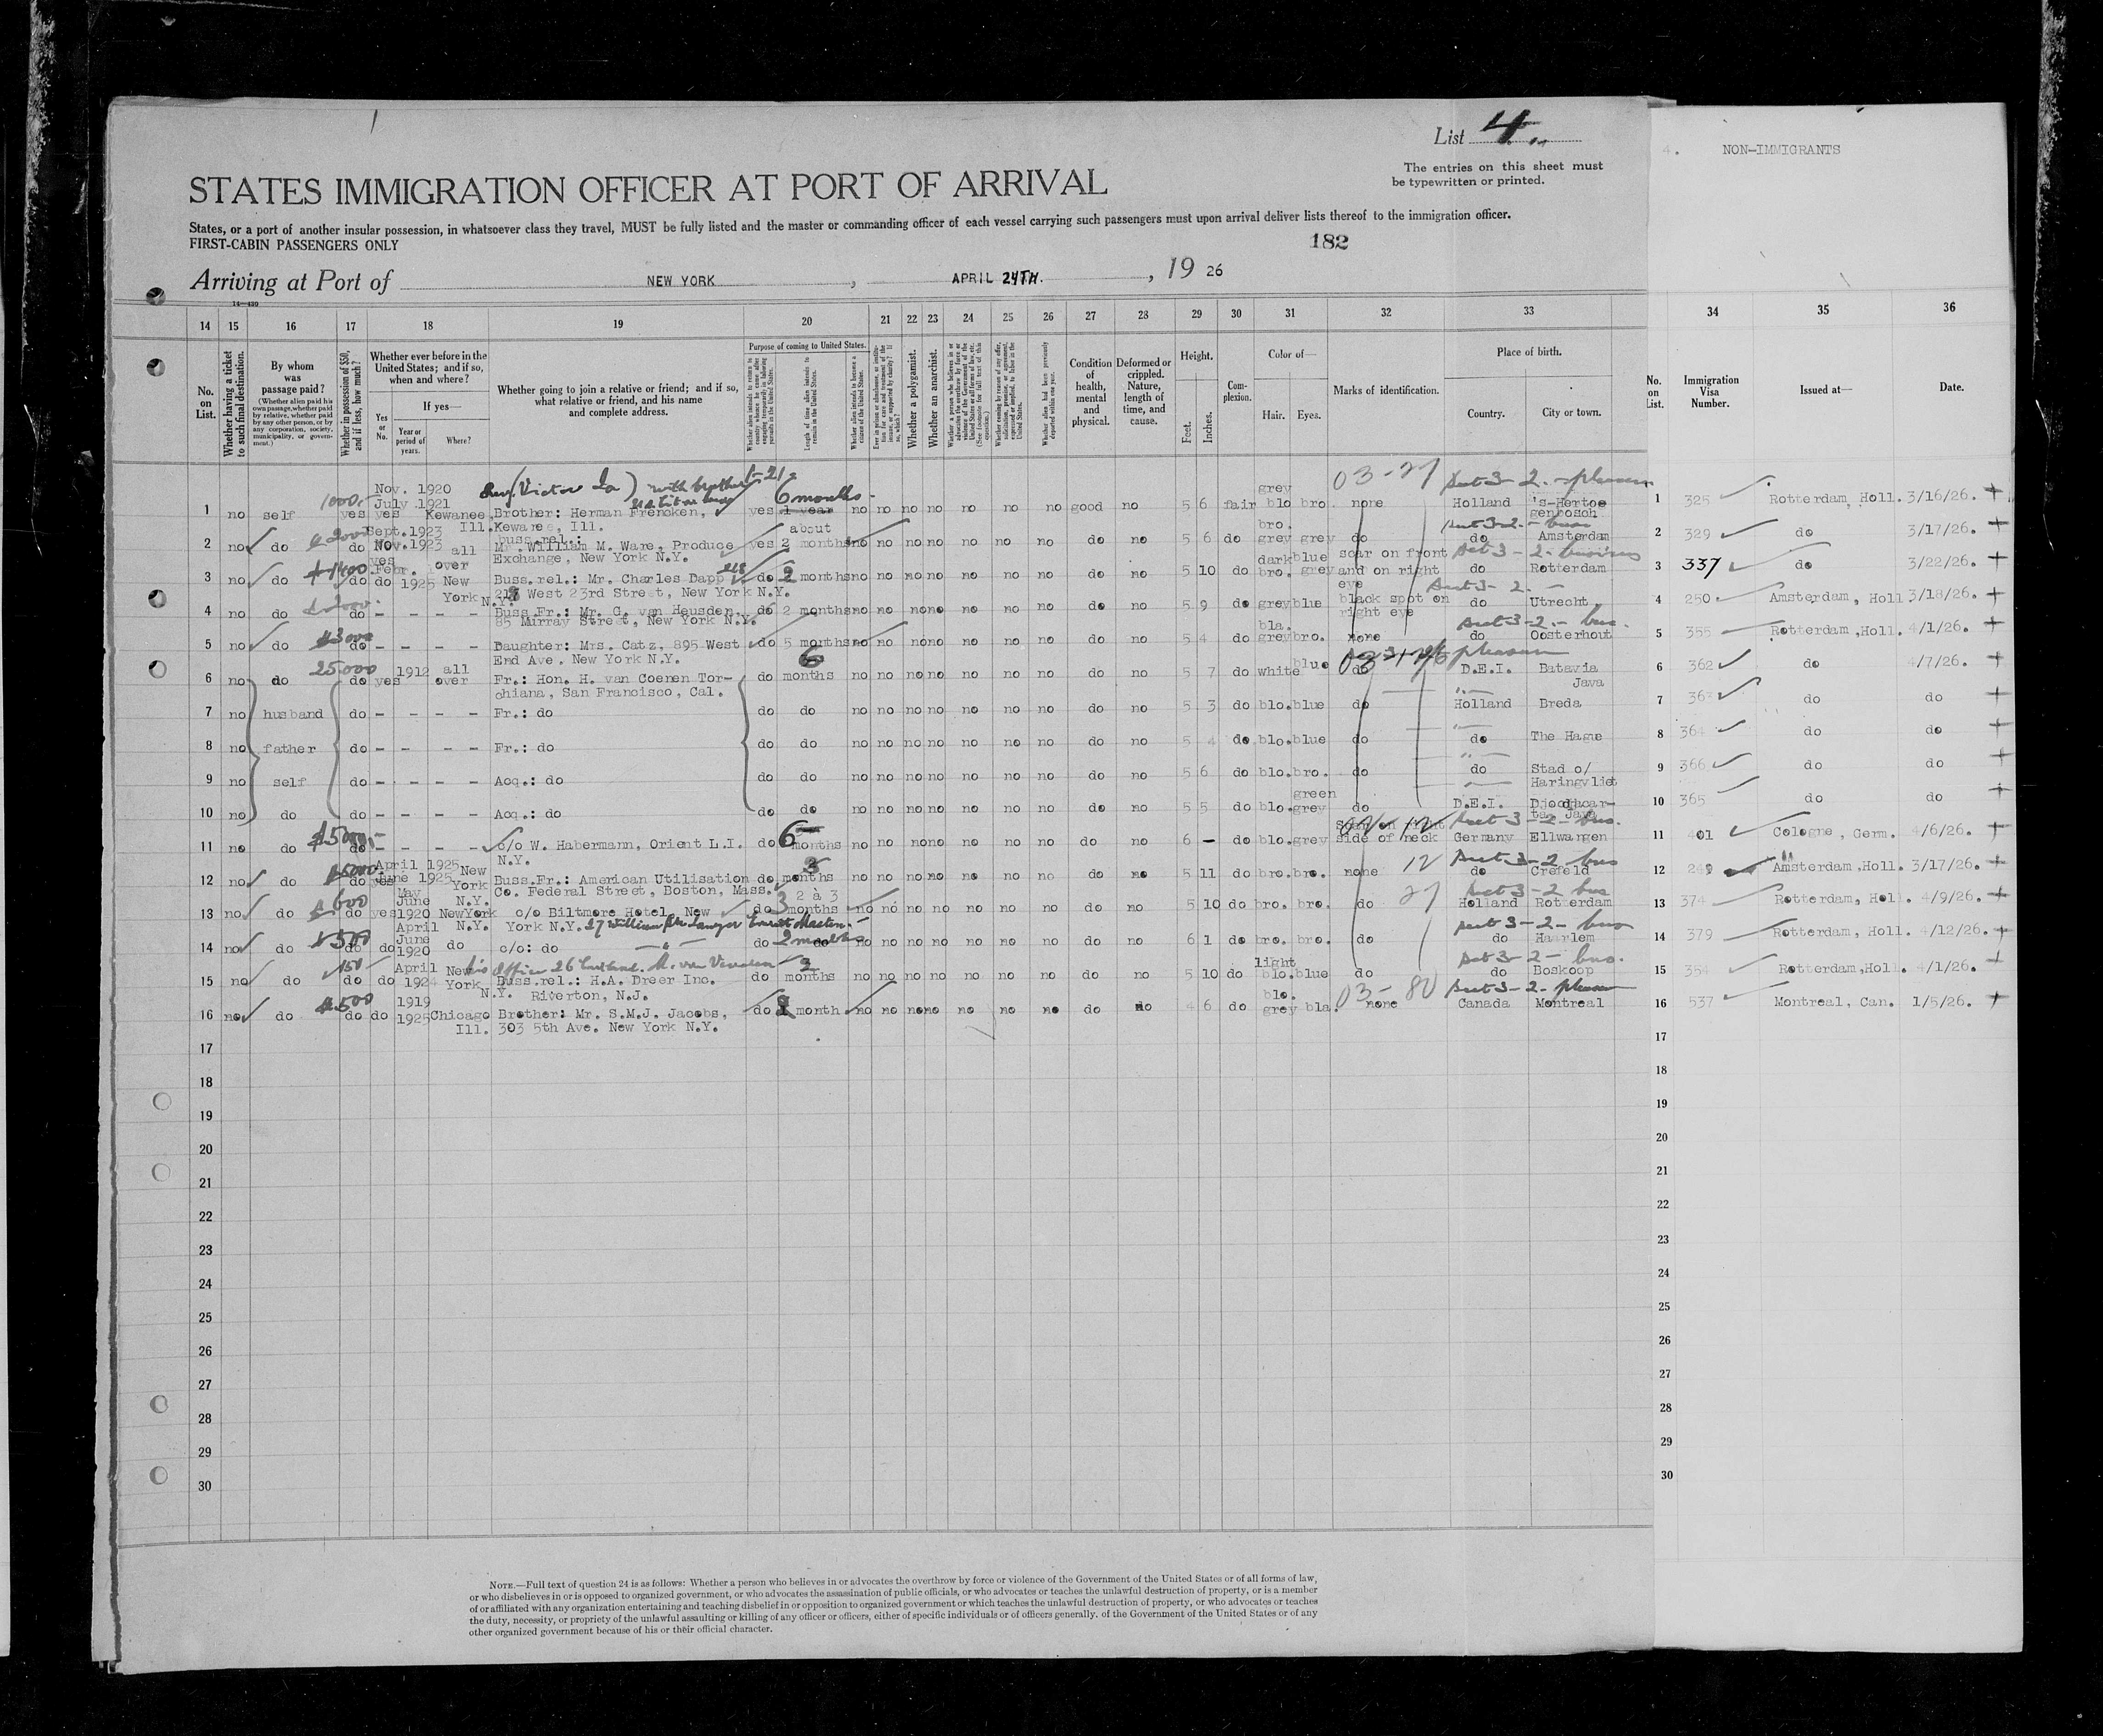 List 4.
4. NON-IMMIGRANTS
The entries on this sheet must
be typewritten or printed.
STATES IMMIGRATION OFFICER AT PORT OF ARRIVAL
States, or a port of another insular possession, in whatsoever class they travel, MUST be fully listed and the master or commanding officer of each vessel carrying such passengers must upon arrival deliver lists thereof to the immigration officer.
FIRST-CABIN PASSENGERS ONLY
182
Arriving at Port of NEW YORK, APRIL 24TH., 19 26
14—430
14 15 16 17 18 19 20 21 22 23 24 25 26 27 28 29 30 31 32 33 34 35 36
No. on List.
Whether having a ticket to such final destination.
By whom was passage paid?
(Whether alien paid his own passage, whether paid by relative, whether paid by any other person, or by any corporation, society, municipality, or government.)
Whether in possession of $50, and if less, how much?
Whether ever before in the United States; and if so, when and where?
Yes or No.
If yes—
Year or period of years.
Where?
Whether going to join a relative or friend; and if so, what relative or friend, and his name and complete address.
Purpose of coming to United States.
Length of time alien intends to remain in the United States.
Whether alien intends to become a citizen of the United States.
Whether a polygamist.
Whether an anarchist.
Condition of health, mental and physical.
Deformed or crippled. Nature, length of time, and cause.
Height.
Feet. Inches.
Complexion.
Color of—
Hair. Eyes.
Marks of identification.
Place of birth.
Country. City or town.
No. on List.
Immigration Visa Number.
Issued at—
Date.
1 no self 1000.- yes yes Nov. 1920 July 1921 Kewanee Ill. Brother: Herman Frencken, Kewanee, Ill. yes 1 year 6 months - no no no no no no no good no 5 6 fair grey blo bro none 03-27 Holland 's-Hertogenbosch 1 325 Rotterdam, Holl. 3/16/26.
2 no do do Sept. 1923 Nov. 1923 all over buss.rel.: Mr. William M. Ware, Produce Exchange, New York N.Y. yes about 2 months no no no no no no no do no 5 6 do bro. grey grey do do Amsterdam 2 329 do 3/17/26.
3 no do do do yes Febr. 1925 New York N.Y. Buss.rel.: Mr. Charles Dapp West 23rd Street, New York N.Y. do 2 months no no no no no no no do no 5 10 do dark bro. blue grey scar on front and on right eye do Rotterdam 3 337 do 3/22/26.
4 no do do - - - - Buss.Fr.: Mr. G. van Heusden, 85 Murray Street, New York N.Y. do 2 months no no no no no no no do no 5 9 do grey blue black spot on right eye do Utrecht 4 250 Amsterdam, Holl 3/18/26.
5 no do do - - - - Daughter: Mrs. Catz, 895 West End Ave, New York N.Y. do 5 months no no no no no no no do no 5 4 do bla. grey bro. none do Oosterhout 5 355 Rotterdam, Holl. 4/1/26.
6 no do 25000 do yes 1912 all over Fr.: Hon. H. van Coenen Torchiana, San Francisco, Cal. do 6 months no no no no no no no do no 5 7 do white blue do D.E.I. Batavia Java 6 362 do 4/7/26.
7 no husband do - - - - Fr.: do do do no no no no no no no do no 5 3 do blo. blue do Holland Breda 7 363 do do
8 no father do - - - - Fr.: do do do no no no no no no no do no 5 4 do blo. blue do do The Hague 8 364 do do
9 no self do - - - - Acq.: do do do no no no no no no no do no 5 6 do blo. bro. do do Stad o/ Haringvliet 9 366 do do
10 no do do - - - - Acq.: do do do no no no no no no no do no 5 5 do blo. green grey do D.E.I. Java 10 365 do do
11 no do do - - - - c/o W. Habermann, Orient L.I. N.Y. do 6 months no no no no no no no do no 6 - do blo. grey side of neck Germany Ellwangen 11 Cologne, Germ. 4/6/26.
12 no do do yes April 1925 June 1925 New York N.Y. Buss.Fr.: American Utilisation Co. Federal Street, Boston, Mass. do 3 months no no no no no no no do no 5 11 do bro. bro. none 12 do Crefeld 12 Amsterdam, Holl. 3/17/26.
13 no do do yes May June 1920 New York N.Y. c/o Biltmore Hotel, New York N.Y. do 2 à 3 months no no no no no no no do no 5 10 do bro. bro. do 27 Holland Rotterdam 13 374 Rotterdam, Holl. 4/9/26.
14 no do do do April June 1920 do c/o: do do 2 months no no no no no no no do no 6 1 do bro. bro. do do Haarlem 14 379 Rotterdam, Holl. 4/12/26.
15 no do do do April 1924 New York N.Y. Buss.rel.: H.A. Dreer Inc. Riverton, N.J. do months no no no no no no no do no 5 10 do light blo. blue do do Boskoop 15 354 Rotterdam, Holl. 4/1/26.
16 no do do do 1919 1925 Chicago Ill. Brother: Mr. S.M.J. Jacobs, 303 5th Ave. New York N.Y. do month no no no no no no no do no 4 6 do blo. grey bla. none 03-80 Canada Montreal 16 537 Montreal, Can. 1/5/26.
17 17
18 18
19 19
20 20
21 21
22 22
23 23
24 24
25 25
26 26
27 27
28 28
29 29
30 30
NOTE.—Full text of question 24 is as follows: Whether a person who believes in or advocates the overthrow by force or violence of the Government of the United States or of all forms of law,
or who disbelieves in or is opposed to organized government, or who advocates the assassination of public officials, or who advocates or teaches the unlawful destruction of property, or is a member
of or affiliated with any organization entertaining and teaching disbelief in or opposition to organized government or which teaches the unlawful destruction of property, or who advocates or teaches
the duty, necessity, or propriety of the unlawful assaulting or killing of any officer or officers, either of specific individuals or of officers generally. of the Government of the United States or of any
other organized government because of his or their official character.